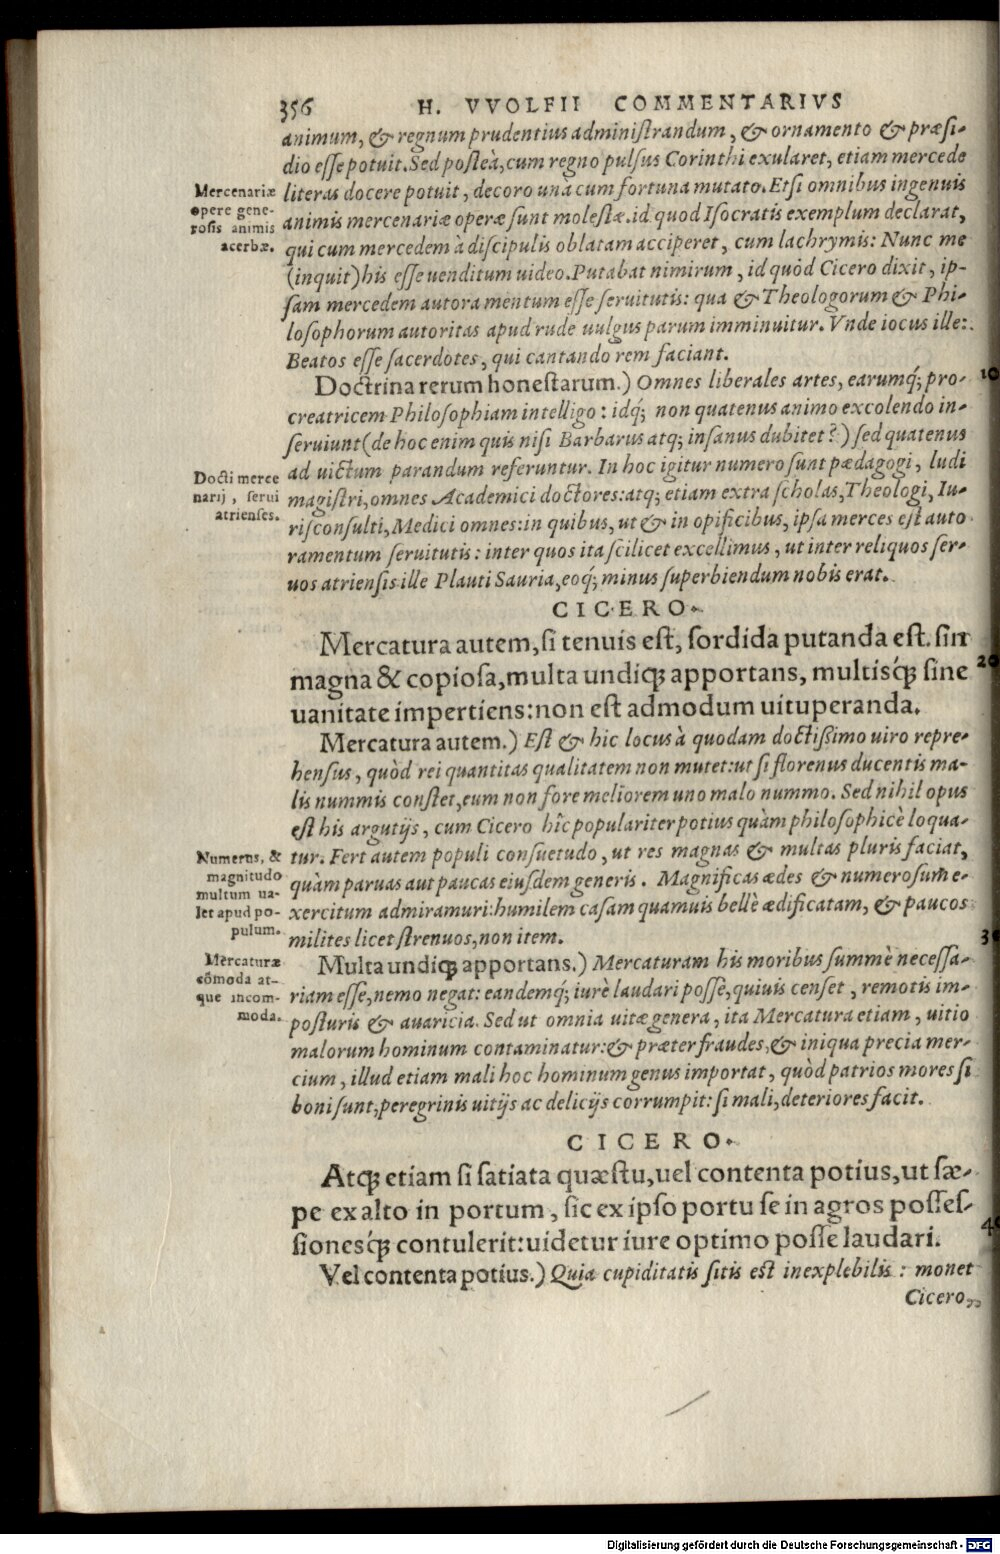 356 H. VVOLFII COMMENTARIVS
animum, & regnum prudentius administrandum, & ornamento & præsi-
dio esse potuit. Sed posteà, cum regno pulsus Corinthi exularet, etiam mercede
literas docere potuit, decoro unà cum fortuna mutato. Etsi omnibus ingenuis
animis mercenariæ operæ sunt molestæ. id quod Isocratis exemplum declarat,
qui cum mercedem à discipulis oblatam acciperet, cum lachrymis: Nunc me
(inquit) his esse uenditum uideo. Putabat nimirum, id quòd Cicero dixit, ip-
sam mercedem autoramentum esse seruitutis: qua & Theologorum & Phi-
losophorum autoritas apud rude uulgus parum imminuitur. Vnde iocus ille:
Beatos esse sacerdotes, qui cantando rem faciant.
Mercenariæ
operæ gene-
rosis animis
acerbæ.
Doctrina rerum honestarum.) Omnes liberales artes, earumq́; pro- 10
creatricem Philosophiam intelligo: idq́; non quatenus animo excolendo in-
seruiunt (de hoc enim quis nisi Barbarus atq; insanus dubitet?) sed quatenus
ad uictum parandum referuntur. In hoc igitur numero sunt pædagogi, ludi
magistri, omnes Academici doctores: atq; etiam extra scholas, Theologi, Iu-
risconsulti, Medici omnes: in quibus, ut & in opificibus, ipsa merces est auto
ramentum seruitutis: inter quos ita scilicet excellimus, ut inter reliquos ser-
uos atriensis ille Plauti Sauria, eoq́; minus superbiendum nobis erat.
Docti merce
narij, serui
atrienses.
CICERO.
Mercatura autem, si tenuis est, sordida putanda est. sin
magna & copiosa, multa undiq; apportans, multisq́; sine 20
uanitate impertiens: non est admodum uituperanda.
Mercatura autem.) Est & hic locus à quodam doctissimo uiro repre-
hensus, quòd rei quantitas qualitatem non mutet: ut si florenus ducentis ma-
lis nummis constet, eum non fore meliorem uno malo nummo. Sed nihil opus
est his argutijs, cum Cicero hîc populariter potius quàm philosophicè loqua-
tur. Fert autem populi consuetudo, ut res magnas & multas pluris faciat,
quàm paruas aut paucas eiusdem generis. Magnificas ædes & numerosum e-
xercitum admiramur: humilem casam quamuis bellè ædificatam, & paucos
milites licet strenuos, non item. 30
Numerus, &
magnitudo
multum ua-
let apud po-
pulum.
Multa undiq; apportans.) Mercaturam his moribus summè necessa-
riam esse, nemo negat: eandemq́; iurè laudari posse, quiuis censet, remotis im-
posturis & auaricia. Sed ut omnia uitæ genera, ita Mercatura etiam, uitio
malorum hominum contaminatur: & præter fraudes, & iniqua precia mer-
cium, illud etiam mali hoc hominum genus importat, quòd patrios mores si
boni sunt, peregrinis uitijs ac delicijs corrumpit: si mali, deteriores facit.
Mercaturæ
cõmoda at-
que incom-
moda.
CICERO.
Atq; etiam si satiata quæstu, uel contenta potius, ut sæ-
pe ex alto in portum, sic ex ipso portu se in agros posses-
sionesq́; contulerit: uidetur iure optimo posse laudari. 40
Vel contenta potius.) Quia cupiditatis sitis est inexplebilis: monet
Cicero,
Digitalisierung gefördert durch die Deutsche Forschungsgemeinschaft - DFG